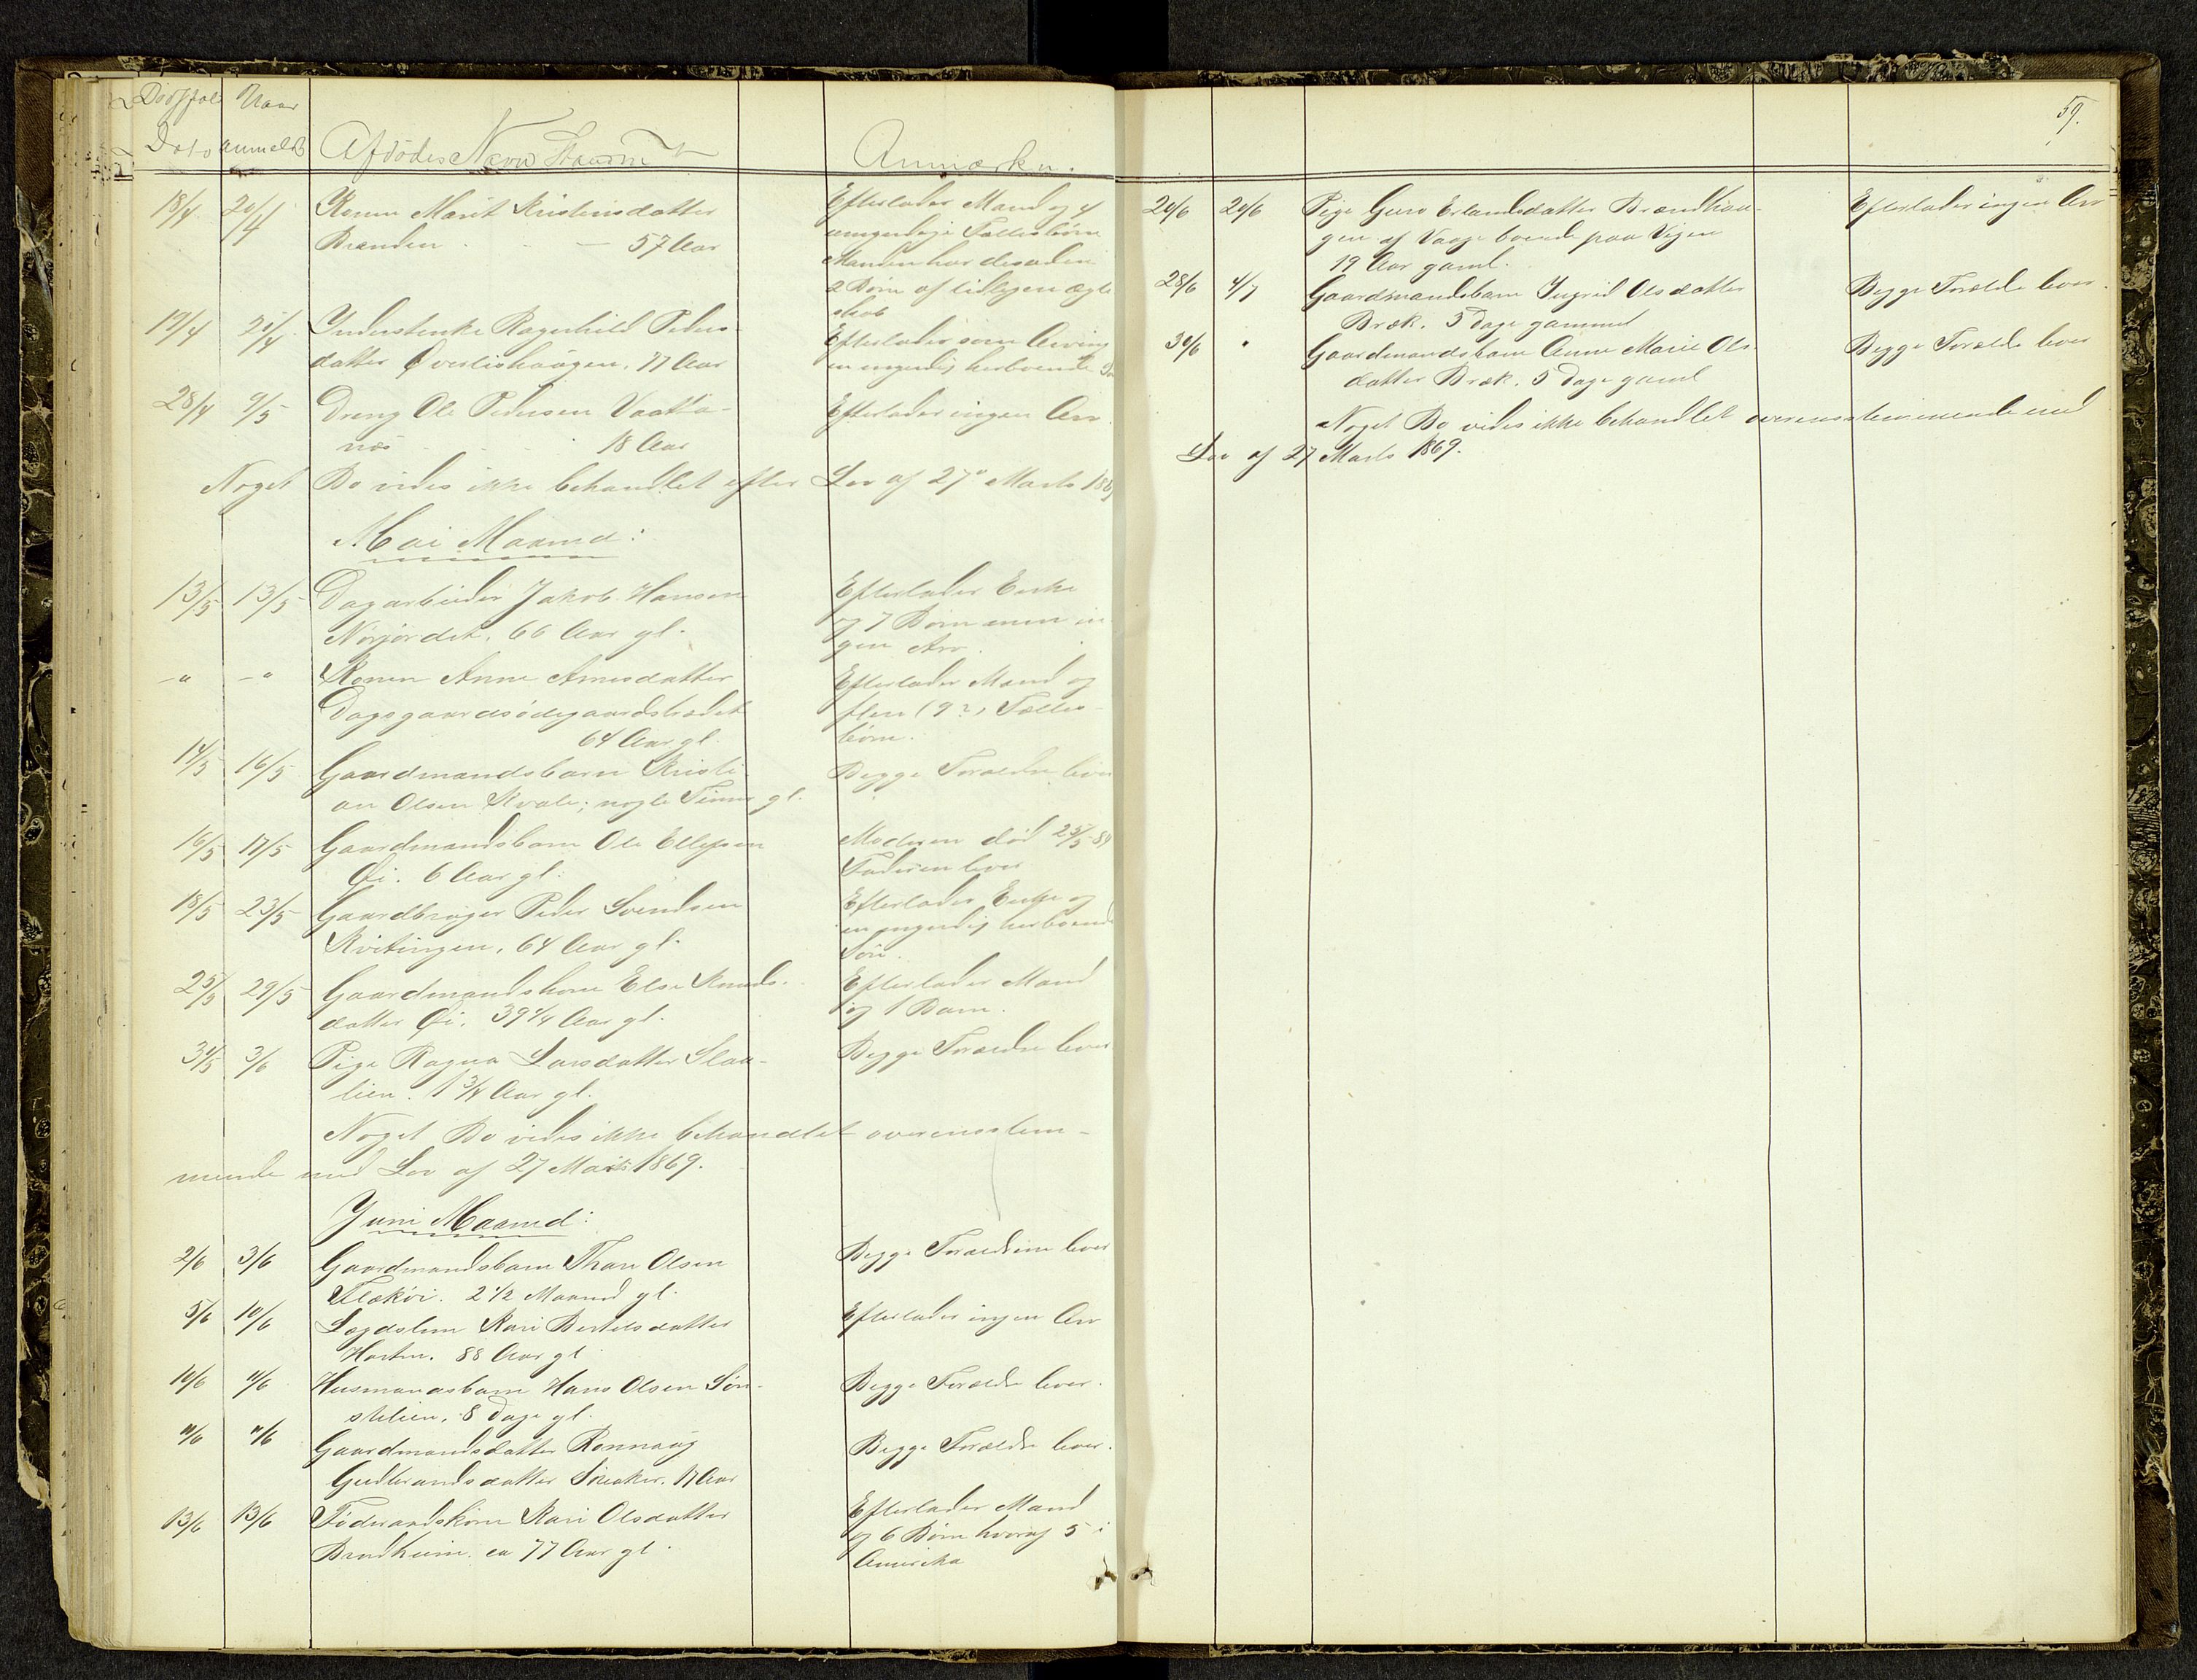 Dødsfal Naar
Dato anmeldt Afdødes Navn Anmærkn.
18/4 20/4 Konen Marit Kristensdatter Efterlader Mand og 4
Brænden 57 Aar umyndige Fællesbørn
Manden har desuden
2 Børn af tidligere ægte
skab
19/4 Inderstenke Ragnhild Peders- Efterlader som Arving
datter Øverlishaugen. 77 Aar en myndig herboende
28/4 9/5 Dreng Ole Pedersen Vatta- Efterlader ingen Arv.
næs 18 Aar
Noget Bo vides ikke behandlet efter Lov af 27de Marts 1869
Mai Maaned:
13/5 13/5 Dagarbeider Jakob Hansen Efterlader Enke
Nørjordet. 66 Aar gl. og 7 Børn men in
gen Arv.
-" -" Konen Anne Arnesdatter Efterlader Mand og
Dagsgaardsødegaardstrædet flere (9?) Fælles-
64 Aar gl. børn.
14/5 16/5 Gaardmandsbarn Kristi- Begge Forældre lever
an Olsen Kvale; nogle Timer gl.
16/5 17/5 Gaardmandsbarn Ole Ellefsen Moderen død 25/5 89
Øi. 6 Aar gl. Faderen lever
18/5 23/5 Gaardbruger Peder Svendsen Efterlader Enke og
Kvitingen, 64 Aar gl. en myndig herboende
Søn.
25/5 29/5 Gaardmandskone Else Knuds- Efterlader Mand
datter Øi. 39 1/4 Aar gl. og 1 Barn.
31/5 3/6 Pige Ragna Larsdatter Slaa- Begge Forældre lever
lien. 1 3/4 Aar gl.
Noget Bo vides ikke behandlet overensstem-
mende med Lov af 27 Marts 1869.
Juni Maaned:
2/6 3/6 Gaardmandsbarn Thore Olsen Begge Forældrene lever
Flekøi. 2 1/2 Maaned gl.
5/6 10/6 Lægdslem Kari Bertelsdatter Efterlader ingen Arv
88 Aar gl
10/6 11/6 Husmandsbarn Hans Olsen Søn- Begge Forældre lever.
stelien. 8 Dage gl.
11/6 11/6 Gaardmandsdatter Rønnaug Begge Forældre lever.
Gudbrandsdatter 17 Aar
13/6 13/6 Føderaadskone Kari Olsdatter Efterlader Mand
ca 77 Aar gl. og 6 Børn hvoraf 5 i
Amerika
59.
20/6 20/6 Pige Guro Erlandsdatter Brændhau- Efterlader ingen Arv
gen af Vaage boende paa Vigen
19 Aar gaml.
28/6 4/7 Gaardmandsbarn Ingrid Olsdatter Begge Forældre lever.
Bræk. 3 Dage gammel
30/6 " Gaardmandsbarn Anne Marie Ols- Begge Forældre lever
datter Bræk. 5 Dage gaml
Noget Bo vides ikke behandlet overensstemmende med
Lov af 27 Marts 1869.